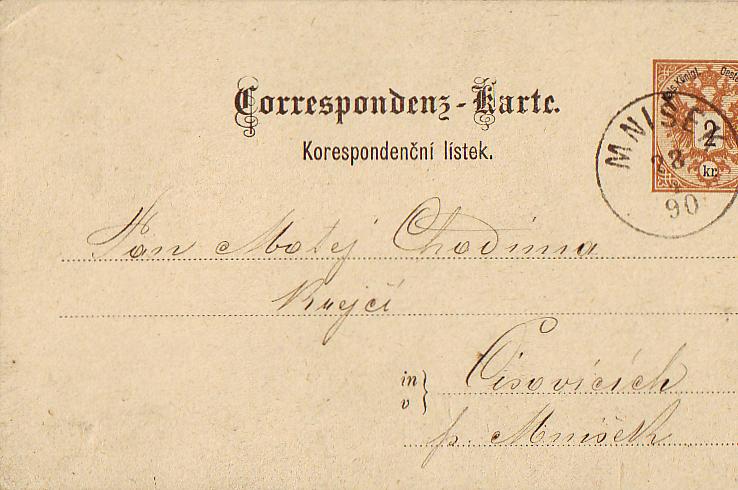 Correspondenz-Karte.
Korespondenční lístek.
MNISEK
28
90
2
kr.
Pán Matěj Chodima
Krejčí
in
v
Čisovicích
p. Mníšek